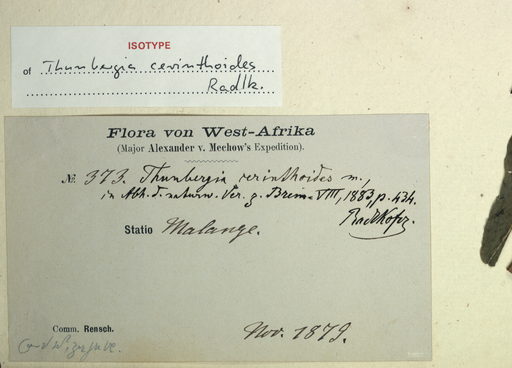 ISOTYPE
of Thunbergia cerinthoides
Radlk.
Flora von West-Afrika
(Major Alexander v. Mechow's Expedition).
№ 373. Thunbergia cerinthoides m.,
in Abh. d. naturw. Ver. z. Brem. VIII, 1883, p. 434.
Radlkofer.
Statio Malange.
Comm. Rensch.
Nov. 1879.